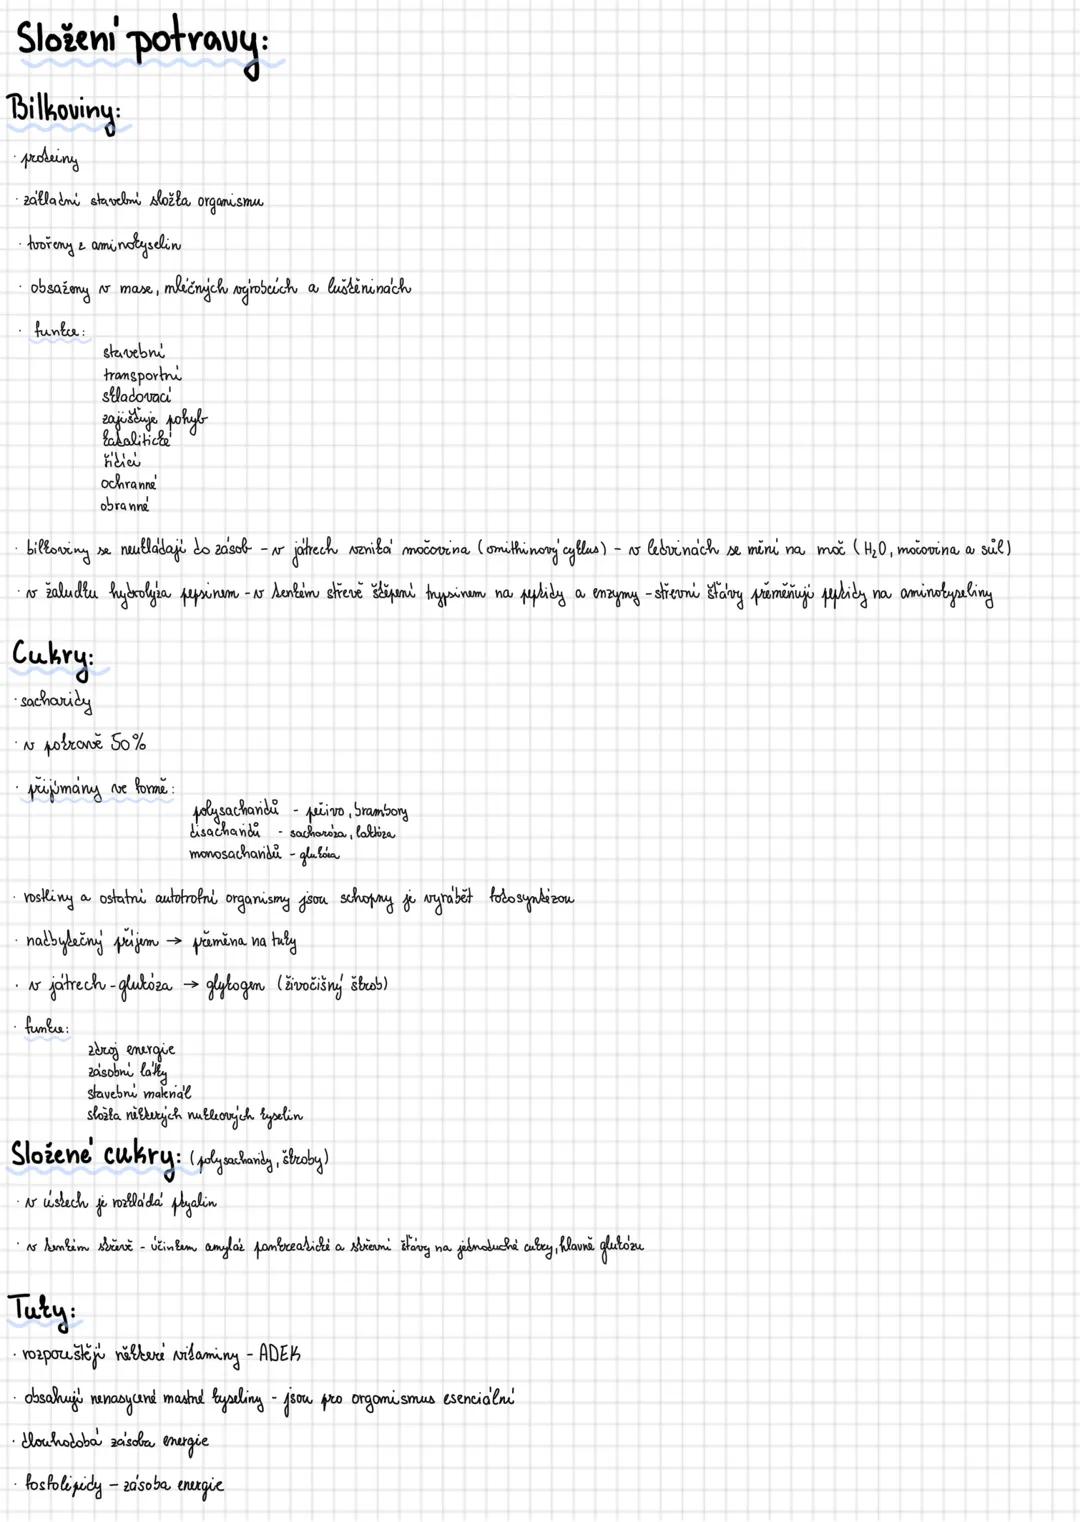 Složení potravy:
Bílkoviny:
· proteiny
· základní stavební složka organismu
· tvořeny z aminokyselin
· obsaženy v mase, mléčných výrobcích a luštěninách
· funkce:
stavební
transportní
skladovací
zajišťuje pohyb
katalitické
řídící
ochranné
obranné
· bílkoviny se neukládají do zásob - v játrech vzniká močovina (ornithinový cyklus) - v ledvinách se mění na moč (H₂O, močovina a sůl)
· v žaludku hydrolýza pepsinem - v tenkém střevě štěpení trypsinem na peptidy a enzymy - střevní šťávy přeměňují peptidy na aminokyseliny
Cukry:
· sacharidy
· v potravě 50%
· přijímány ve formě:
polysacharidů - pečivo, brambory
disacharidů - sacharóza, laktóza
monosacharidů - glukóza
· rostliny a ostatní autotrofní organismy jsou schopny je vyrábět fotosyntézou
· nadbytečný příjem → přeměna na tuky
· v játrech - glukóza → glykogen (živočišný škrob)
· funkce:
zdroj energie
zásobní látky
stavební materiál
složka některých nukleových kyselin
Složené cukry: (polysacharidy, škroby)
· v ústech je rozkládá ptyalin
· v tenkém střevě - účinkem amyláz pankreatické a střevní šťávy na jednoduché cukry, hlavně glukózu
Tuky:
· rozpouštějí některé vitaminy - ADEK
· obsahují nenasycené mastné kyseliny - jsou pro organismus esenciální
· dlouhodobá zásoba energie
· fosfolipidy - zásoba energie